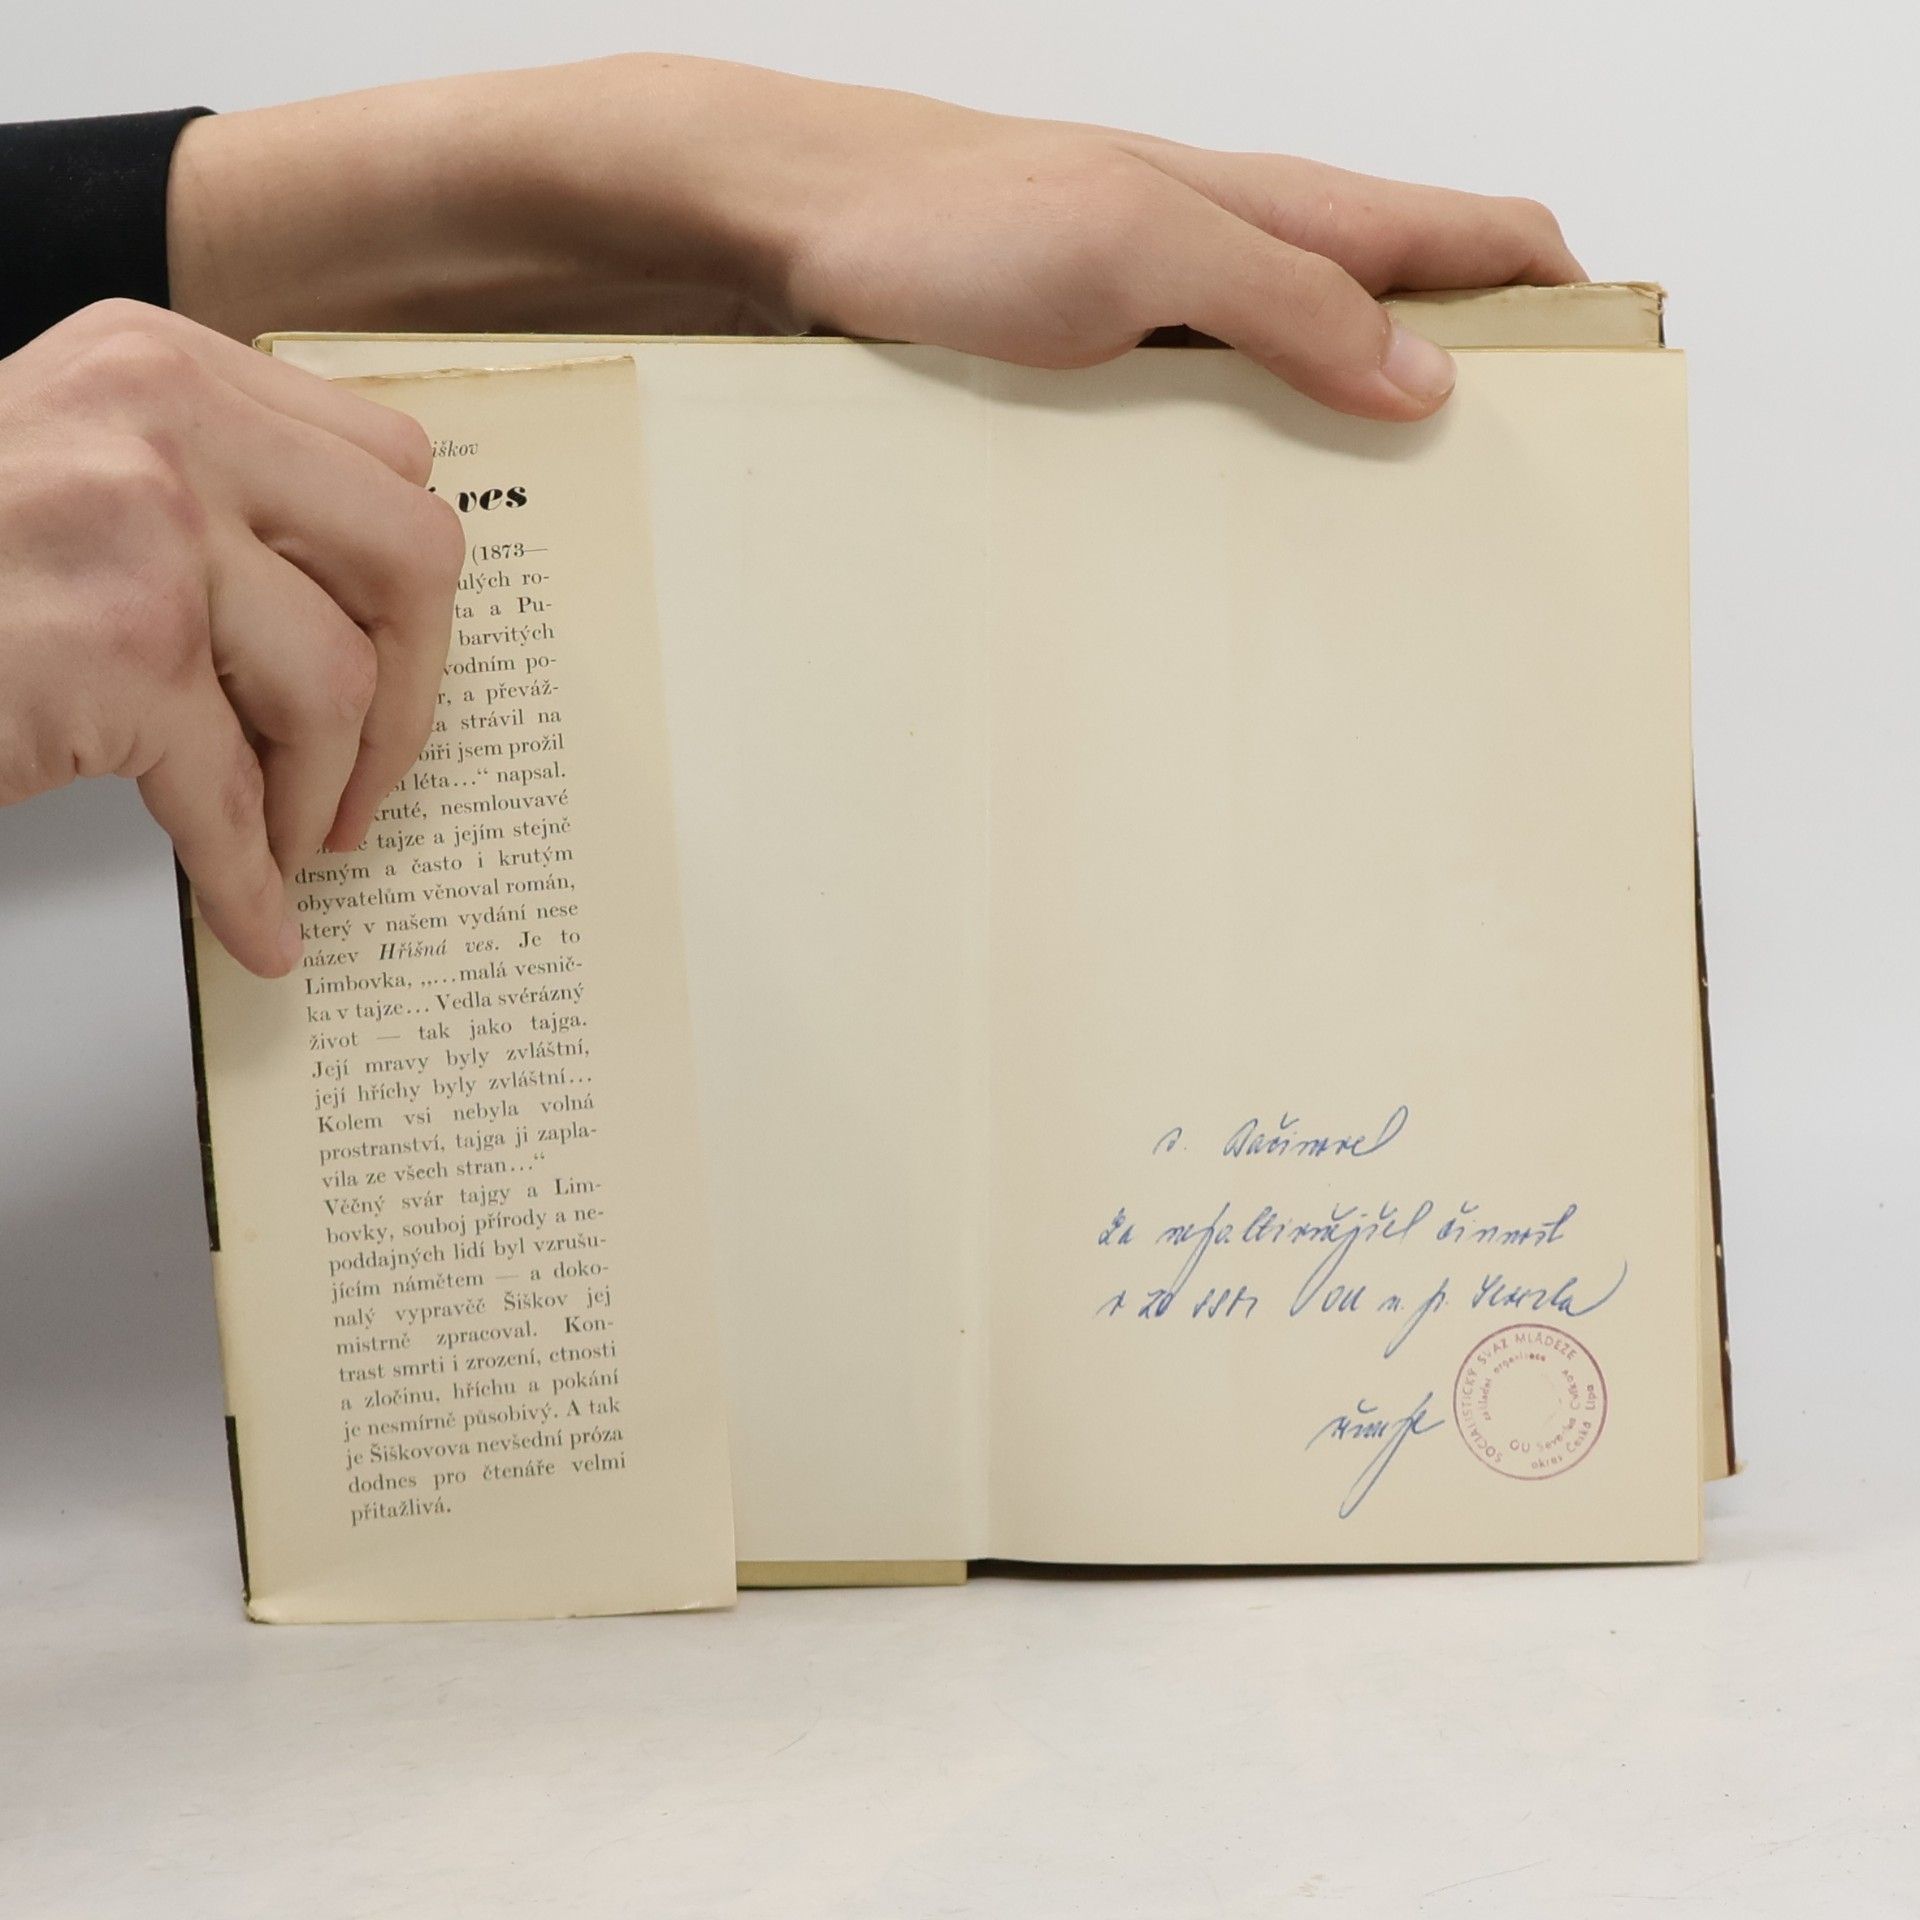 iškov
ves
(1873—
ulých ro-
ta a Pu-
barvitých
vodním po-
r, a převáž-
ta strávil na
biři jsem prožil
ší léta...“ napsal.
kruté, nesmlouvavé
tajze a jejím stejně
drsným a často i krutým
obyvatelům věnoval román,
který v našem vydání nese
název Hříšná ves. Je to
Limbovka, „...malá vesnič-
ka v tajze... Vedla svérázný
život — tak jako tajga.
Její mravy byly zvláštní,
její hříchy byly zvláštní...
Kolem vsi nebyla volná
prostranství, tajga ji zapla-
vila ze všech stran...“
Věčný svár tajgy a Lim-
bovky, souboj přírody a ne-
poddajných lidí byl vzrušu-
jícím námětem — a doko-
nalý vypravěč Šiškov jej
mistrně zpracoval. Kon-
trast smrti i zrození, ctnosti
a zločinu, hříchu a pokání
je nesmírně působivý. A tak
je Šiškovova nevšední próza
dodnes pro čtenáře velmi
přitažlivá.
s.
Za nejaktivnější činnost
v ZO SSM OU n. p.
SOCIALISTICKÝ SVAZ MLÁDEŽE
základní organizace
OU Severka Cvikov
okres Česká Lípa